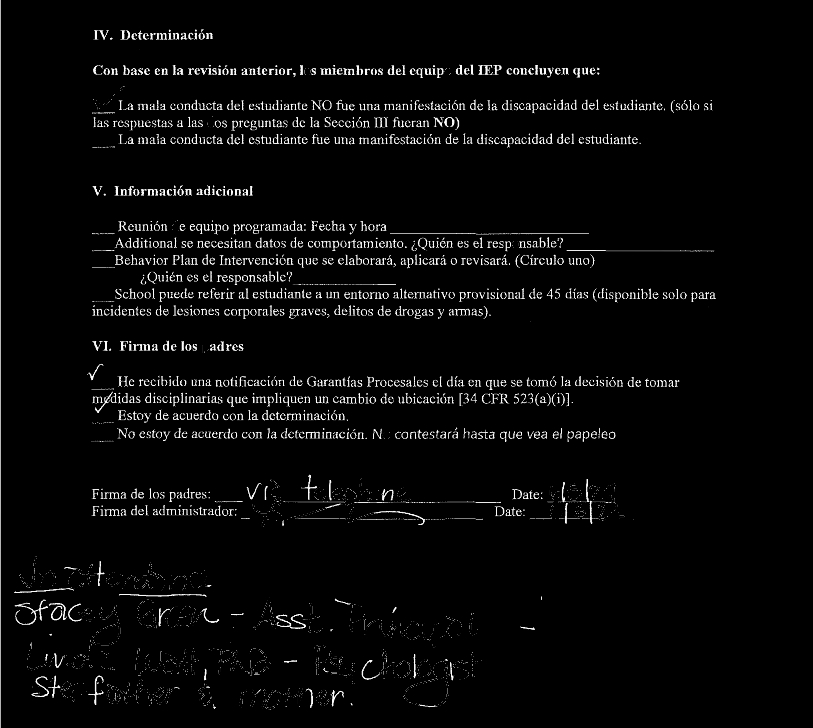 IV. Determinación
Con base en la revisión anterior, los miembros del equipo del IEP concluyen que:
✓ La mala conducta del estudiante NO fue una manifestación de la discapacidad del estudiante. (sólo si
las respuestas a las dos preguntas de la Sección III fueran NO)
___ La mala conducta del estudiante fue una manifestación de la discapacidad del estudiante.
V. Información adicional
___ Reunión de equipo programada: Fecha y hora ___
___ Additional se necesitan datos de comportamiento. ¿Quién es el responsable? ___
___ Behavior Plan de Intervención que se elaborará, aplicará o revisará. (Círculo uno)
¿Quién es el responsable? ___
___ School puede referir al estudiante a un entorno alternativo provisional de 45 días (disponible solo para
incidentes de lesiones corporales graves, delitos de drogas y armas).
VI. Firma de los padres
✓ He recibido una notificación de Garantías Procesales el día en que se tomó la decisión de tomar
medidas disciplinarias que impliquen un cambio de ubicación [34 CFR 523(a)(i)].
✓ Estoy de acuerdo con la determinación.
___ No estoy de acuerdo con la determinación. No contestará hasta que vea el papeleo
Firma de los padres: via telephone Date:
Firma del administrador: Date:
In attendance
Stacey - Asst. Principal
PhD - Psychologist
Stepfather & mother.